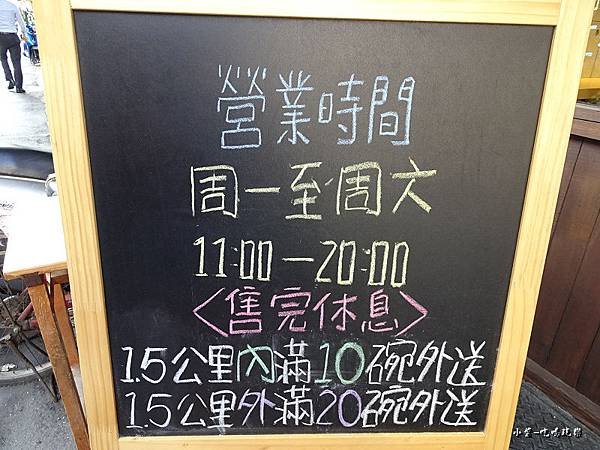 營業時間
周一至周六
11:00－20:00
＜售完休息＞
1.5公里內滿10碗外送
1.5公里外滿20碗外送